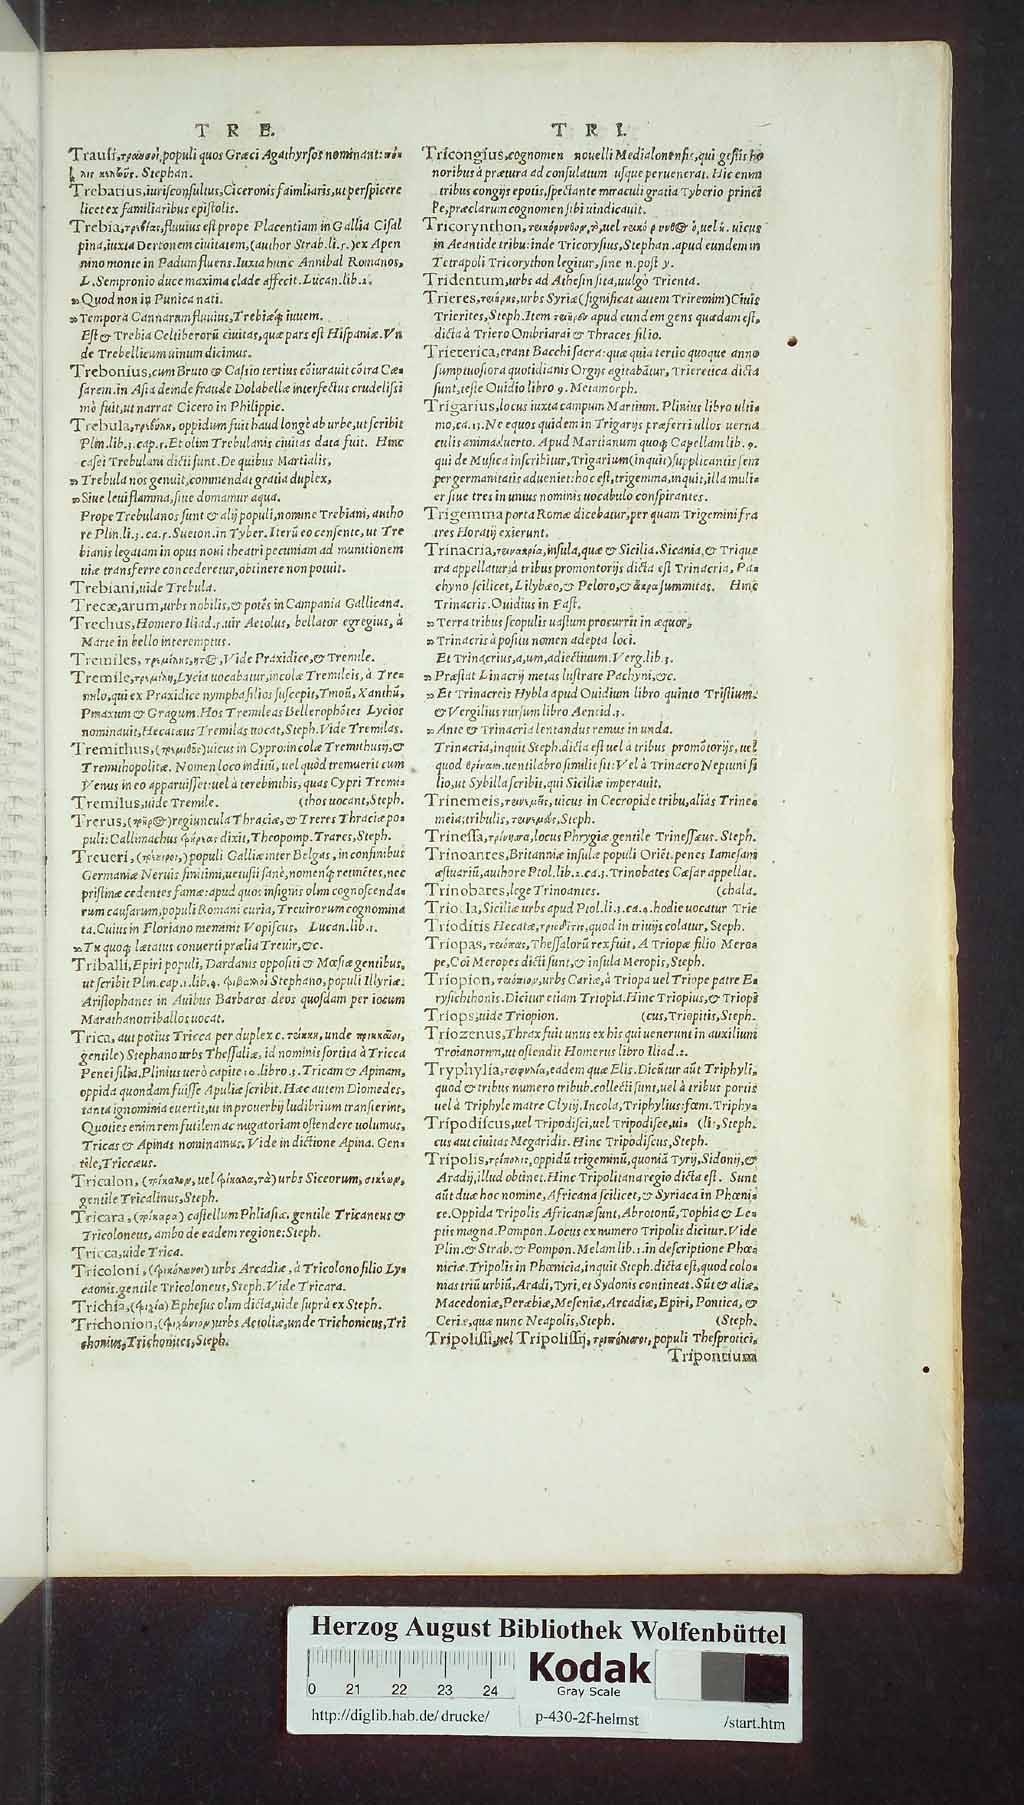 T R E.
Trausi, τραυσοὶ, populi quos Græci Agathyrsos nominant:
Stephan.
Trebatius, iurisconsultus, Ciceronis faimliaris, ut perspicere
licet ex familiaribus epistolis.
Trebia, τρεβίας, fluuius est prope Placentiam in Gallia Cisal
pina, iuxta Dertonem ciuitatem, (author Strab. li. 5.) ex Apen
nino monte in Padum fluens. Iuxta hunc Annibal Romanos,
L. Sempronio duce maxima clade affecit. Lucan. lib. 2.
Quod non in Punica nati.
Tempora Cannarum fluuius, Trebiæq́; iuuem.
Est & Trebia Celtiberorũ ciuitas, quæ pars est Hispaniæ. Vn
de Trebellicum uinum dicimus.
Trebonius, cum Bruto & Cassio tertius cõiurauit cõtra Cæ⸗
sarem. in Asia deinde fraude Dolabellæ interfectus crudelissi
mò fuit, ut narrat Cicero in Philippic.
Trebula, τρίβουλα, oppidum fuit haud longè ab urbe, ut scribit
Plin. lib. 3. cap. 5. Et olim Trebulanis ciuitas data fuit. Hinc
casei Trebulani dicti sunt. De quibus Martialis,
Trebula nos genuit, commendat gratia duplex,
Siue leui flamma, siue domamur aqua.
Prope Trebulanos sunt & alij populi, nomine Trebiani, autho
re Plin. li. 3. ca. 5. Sueton. in Tyber. Iterũ eo censente, ut Tre
bianis legatam in opus noui theatri pecuniam ad munitionem
uiæ transferre concederetur, obtinere non potuit.
Trebiani, uide Trebula.
Trecæ, arum, urbs nobilis, & potẽs in Campania Gallicana.
Trechus, Homero Iliad. 5. uir Aetolus, bellator egregius, à
Marte in bello interemptus.
Tremiles, Vide Praxidice, & Tremile.
Tremile, τρεμίλη, Lycia uocabatur, incolæ Tremileis, à Tre⸗
milo, qui ex Praxidice nympha filios suscepit, Tmoũ, Xanthũ,
Pinaxum & Gragum. Hos Tremileas Bellerophõtes Lycios
nominauit, Hecatæus Tremilas uocat, Steph. Vide Tremilas.
Tremithus, (τρεμιθοῦς) uicus in Cypro: incolæ Tremithusij, &
Tremithopolitæ. Nomen loco inditũ, uel quòd tremuerit cum
Venus in eo apparuisset: uel à terebinthis, quas Cypri Tremi⸗
Tremilus, uide Tremile. (thos uocant, Steph.
Trerus, regiuncula Thraciæ, & Treres Thraciæ po⸗
puli: Callimachus dixit, Theopomp. Trares, Steph.
Treueri, populi Galliæ inter Belgas, in confinibus
Germaniæ Neruiis finitimi, uetusti sanè, nomenq́; retinẽtes, nec
pristinæ cedentes famæ: apud quos insignis olim cognoscenda⸗
rum causarum, populi Romani curia, Treuirorum cognomina
ta. Cuius in Floriano meminit Vopiscus, Lucan. lib. 1.
Tu quoq; lætatus conuerti prælia Treuir, &c.
Triballi, Epiri populi, Dardanis oppositi & Mœsiæ gentibus,
ut scribit Plin. cap. 1. lib. 4. Stephano, populi Illyriæ.
Aristophanes in Auibus Barbaros deos quosdam per iocum
Marathanotriballos uocat.
Trica, aut potius Tricca per duplex c. τρίκκη, unde
gentile) Stephano urbs Thessaliæ, id nominis sortita à Tricca
Penei filia. Plinius uerò capite 10. libro. 3. Tricam & Apinam,
oppida quondam fuisse Apuliæ scribit. Hæc autem Diomedes,
tanta ignominia euertit, ut in prouerbij ludibrium transierint,
Quoties enim rem futilem ac nugatoriam ostendere uolumus,
Tricas & Apinas nominamus. Vide in dictione Apina. Gen⸗
tile, Triccæus.
Tricalon, (τρίκαλον, uel τρίκαλα, τὰ) urbs Siceorum,
gentile Tricalinus, Steph.
Tricara, (τρίκαρα) castellum Phliasiæ. gentile Tricaneus &
Tricoloneus, ambo de eadem regione: Steph.
Tricca, uide Trica.
Tricoloni, urbs Arcadiæ, à Tricolono filio Ly⸗
caonis. gentile Tricoloneus, Steph. Vide Tricara.
Trichia, Ephesus olim dicta, uide suprà ex Steph.
Trichonion, urbs Aetoliæ, unde Trichonieus, Tri
chonius, Trichonites, Steph.
T R I.
Tricongius, cognomen nouelli Mediolanensis, qui gestis ho
noribus à prætura ad consulatum usque peruenerat. Hic enim
tribus congijs epotis, spectante miraculi gratia Tyberio princi
pe, præclarum cognomen sibi uindicauit.
Tricorynthon, uicus
in Aeantide tribu: inde Tricorysius, Stephan. apud eundem in
Tetrapoli Tricorython legitur, sine n. post y.
Tridentum, urbs ad Athesin sita, uulgò Trienta.
Trieres, τριήρης, urbs Syriæ (significat autem Triremim) Ciuis
Trierites, Steph. Item apud eundem gens quædam est,
dicta à Triero Ombriarai & Thraces filio.
Trieterica, erant Bacchi sacra: quæ quia tertio quoque anno
sumptuosiora quotidianis Orgijs agitabãtur, Trieretica dicta
sunt, teste Ouidio libro 9. Metamorph.
Trigarius, locus iuxta campum Martium. Plinius libro ulti⸗
mo, ca. 13. Ne equos quidem in Trigarijs præferri ullos uerna
culis animaduerto. Apud Martianum quoq; Capellam lib. 9.
qui de Musica inscribitur, Trigarium (inquit) supplicantis sem
per germanitatis adueniet: hoc est, trigemma, inquit, illa muli⸗
er siue tres in unius nominis uocabulo conspirantes.
Trigemma porta Romæ dicebatur, per quam Trigemini fra
tres Horatij exierunt.
Trinacria, τρινακρία, insula, quæ & Sicilia. Sicania, & Trique
tra appellatur, à tribus promontorijs dicta est Trinacria, Pa⸗
chyno scilicet, Lilybæo, & Peloro, & ἄκρα summitas. Hinc
Trinacris. Ouidius in Fast.
Terra tribus scopulis uastum procurrit in æquor,
Trinacris à positu nomen adepta loci.
Et Trinacrius, a, um, adiectiuum. Verg. lib. 3.
Præstat Linacrij metas lustrare Pachyni, &c.
Et Trinacreis Hybla apud Ouidium libro quinto Tristium.
& Vergilius rursum libro Aeneid. 3.
Ante & Trinacria lentandus remus in unda.
Trinacria, inquit Steph. dicta est uel à tribus promõtorijs, uel
quod θρίναξ. uentilabro similis sit: Vel à Trinacro Neptuni fi
lio, ut Sybilla scribit, qui Siciliæ imperauit.
Trinemeis, uicus in Cecropide tribu, aliàs Trine⸗
meia: tribulis, Steph.
Trinessa, τρίνησσα, locus Phrygiæ. gentile Trinessæus. Steph.
Trinoantes, Britanniæ insulæ populi Oriẽt. penes Iamesam
æstuariũ, authore Ptol. lib. 2. ca. 3. Trinobates Cæsar appellat.
Trinobates, lege Trinoantes. (chala.
Triocla, Siciliæ urbs apud Ptol. li. 3. ca. 4. hodie uocatur Trie
Trioditis Hecatæ, quod in triuijs colatur, Steph.
Triopas, τριόπας, Thessalorũ rex fuit, A Triopæ filio Mero⸗
pe, Coi Meropes dicti sunt, & insula Meropis, Steph.
Triopion, τριόπιον, urbs Cariæ, à Triopa uel Triope patre E⸗
rysichthonis. Dicitur etiam Triopia. Hinc Triopius, & Triopi
Triops, uide Triopion. (cus, Triopitis, Steph.
Triozenus, Thrax fuit unus ex his qui uenerunt in auxilium
Troianorum, ut ostendit Homerus libro Iliad. 2.
Tryphylia, τριφυλία, eadem quæ Elis. Dicũtur aũt Triphyli,
quod & tribus numero tribub. collecti sunt, uel à tribus portis
uel à Triphyle matre Clytij. Incola, Triphylius: fœm. Triphy⸗
Tripodiscus, uel Tripodisci, uel Tripodiscæ, ui⸗ (lis, Steph.
cus aut ciuitas Megaridis. Hinc Tripodiscus, Steph.
Tripolis, τρίπολις, oppidũ trigeminũ, quoniã Tyrij, Sidonij, &
Aradij, illud obtinet. Hinc Tripolitana regio dicta est. Sunt
aũt duæ hoc nomine, Africana scilicet, & Syriaca in Phœni⸗
ce. Oppida Tripolis Africanæ sunt, Abrotonũ, Tophia & Le⸗
ptis magna. Pompon. Locus ex numero Tripolis dicitur. Vide
Plin. & Strab. & Pompon. Melam lib. 1. in descriptione Phœ⸗
niciæ. Tripolis in Phœnicia, inquit Steph. dicta est, quod colo⸗
nias triũ urbiũ, Aradi, Tyri, et Sydonis contineat. Sũt & aliæ,
Macedoniæ, Peræbiæ, Meseniæ, Arcadiæ, Epiri, Pontica, &
Ceriæ, quæ nunc Neapolis, Steph. (Steph.
Tripolissi, uel Tripolissij, populi Thesprotici,
Tripontium
Herzog August Bibliothek Wolfenbüttel
Kodak
Gray Scale
0 21 22 23 24
http://diglib.hab.de/drucke/ p-430-2f-helmst /start.htm